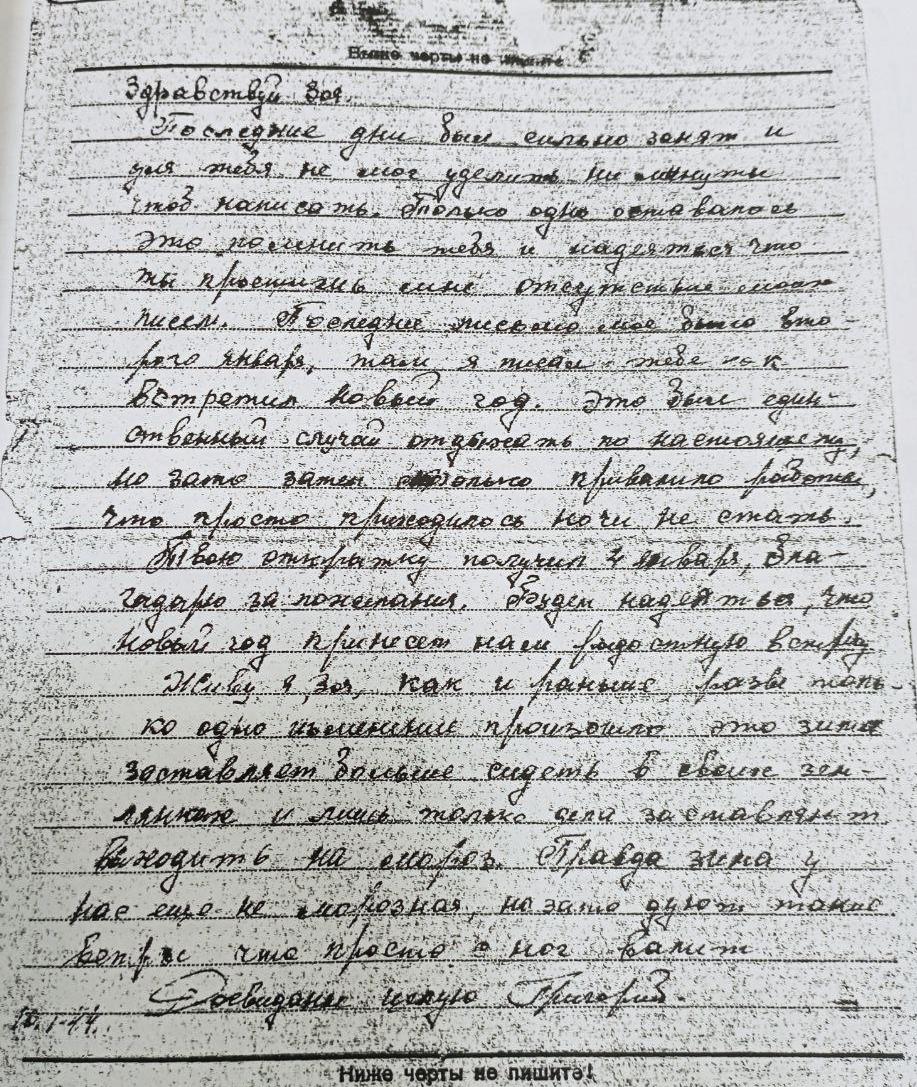 Выше черты не пишите
Здравствуй Зоя.
Последние дни был сильно занят и
для тебя не мог уделить ни минуты
чтоб написать. Только одно оставалось
это помнить тебя и надеяться что
ты простишь мне отсутствие моих
писем. Последнее письмо мое было вто-
рого января, там я писал тебе как
встретил новый год. Это был един-
ственный случай отдыхать по настоящему,
но зато затем столько привалило работы,
что просто приходилось ночи не спать.
Твою открытку получил 4 января, Бла-
гадарю за пожелания. Будем надеяться, что
новый год принесет нам радостную встречу
Живу я, Зоя, как и раньше разве толь-
ко одно изменение произошло это зима
заставляет больше сидеть в своих зем-
лянках и лишь только дела заставляют
выходить на мороз. Правда зима у
нас еще не морозная, но зато дуют такие
ветры что просто с ног валит
Досвидания целую Григорий.
1-44.
Ниже черты не пишите!